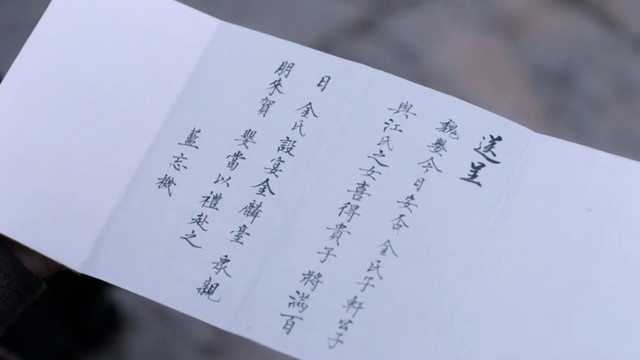 送呈
魏嬰今日安否 金氏子軒公子
與江氏之女喜得貴子 將滿百
日 金氏設宴金麟臺 衆親
朋來賀 嬰當以禮赴之
藍忘機